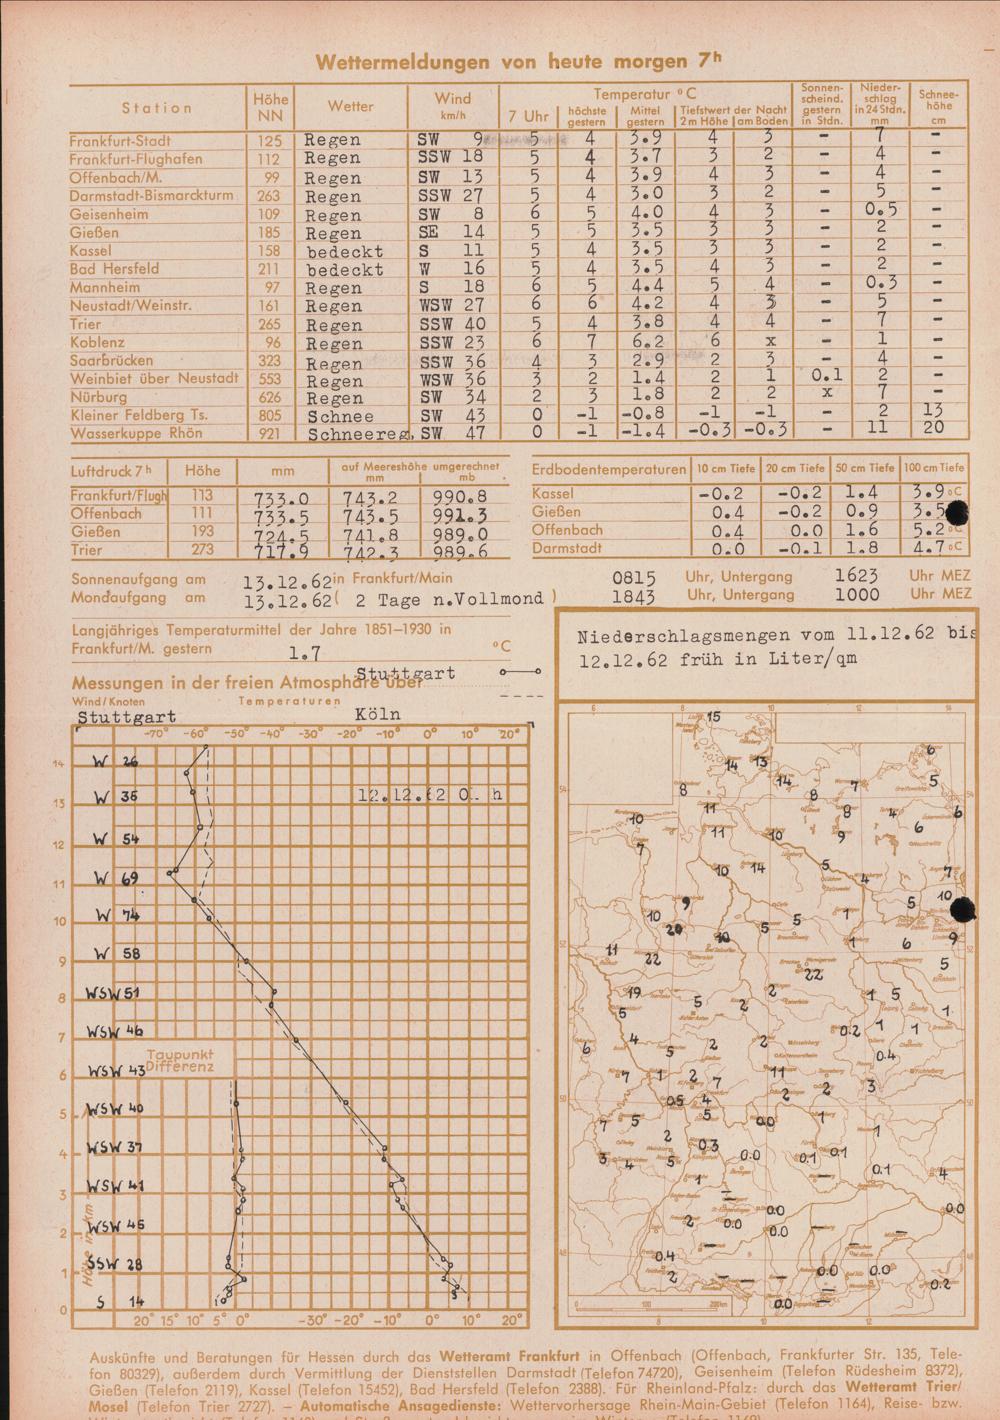 Wettermeldungen von heute morgen 7h
Station Höhe NN Wetter Wind km/h Temperatur °C Sonnen-scheind. gestern in Stdn. Nieder-schlag in 24 Stdn. mm Schnee-höhe cm
7 Uhr höchste gestern Mittel gestern Tiefstwert der Nacht 2 m Höhe am Boden
Frankfurt-Stadt 125 Regen SW 9 5 4 3.9 4 3 – 7 –
Frankfurt-Flughafen 112 Regen SSW 18 5 4 3.7 3 2 – 4 –
Offenbach/M. 99 Regen SW 13 5 4 3.9 4 3 – 4 –
Darmstadt-Bismarckturm 263 Regen SSW 27 5 4 3.0 3 2 – 5 –
Geisenheim 109 Regen SW 8 6 5 4.0 4 3 – 0.5 –
Gießen 185 Regen SE 14 5 5 3.5 3 3 – 2 –
Kassel 158 bedeckt S 11 5 4 3.5 3 3 – 2 –
Bad Hersfeld 211 bedeckt W 16 5 4 3.5 4 3 – 2 –
Mannheim 97 Regen S 18 6 5 4.4 5 4 – 0.3 –
Neustadt/Weinstr. 161 Regen WSW 27 6 6 4.2 4 3 – 5 –
Trier 265 Regen SSW 40 5 4 3.8 4 4 – 7 –
Koblenz 96 Regen SSW 23 6 7 6.2 6 x – 1 –
Saarbrücken 323 Regen SSW 36 4 3 2.9 2 3 – 4 –
Weinbiet über Neustadt 553 Regen WSW 36 3 2 1.4 2 1 0.1 2 –
Nürburg 626 Regen SW 34 2 3 1.8 2 2 x 7 –
Kleiner Feldberg Ts. 805 Schnee SW 43 0 -1 -0.8 -1 -1 – 2 13
Wasserkuppe Rhön 921 Schneereg. SW 47 0 -1 -1.4 -0.3 -0.3 – 11 20
Luftdruck 7h Höhe mm auf Meereshöhe umgerechnet mm mb
Frankfurt/Flugh 113 733.0 743.2 990.8
Offenbach 111 733.5 743.5 991.3
Gießen 193 724.5 741.8 989.0
Trier 273 717.9 742.3 989.6
Erdbodentemperaturen 10 cm Tiefe 20 cm Tiefe 50 cm Tiefe 100 cm Tiefe
Kassel -0.2 -0.2 1.4 3.9 °C
Gießen 0.4 -0.2 0.9 3.5
Offenbach 0.4 0.0 1.6 5.2 °C
Darmstadt 0.0 -0.1 1.8 4.7 °C
Sonnenaufgang am 13.12.62 in Frankfurt/Main 0815 Uhr, Untergang 1623 Uhr MEZ
Mondaufgang am 13.12.62 ( 2 Tage n.Vollmond ) 1843 Uhr, Untergang 1000 Uhr MEZ
Langjähriges Temperaturmittel der Jahre 1851–1930 in
Frankfurt/M. gestern 1.7 °C
Messungen in der freien Atmosphäre über Stuttgart
Wind/Knoten Temperaturen
Stuttgart Köln
-70° -60° -50° -40° -30° -20° -10° 0° 10° 20°
14 W 26
13 W 36 12.12.62 0 h
12 W 54
11 W 69
10 W 74
9 W 58
8 WSW 51
7 WSW 46
6 WSW 43 Taupunkt Differenz
5 WSW 40
4 WSW 37
3 WSW 41
2 WSW 45
1 SSW 28
0 S 14
Höhe in km
20° 15° 10° 5° 0° -30° -20° -10° 0° 10° 20°
Niederschlagsmengen vom 11.12.62 bis
12.12.62 früh in Liter/qm
6 8 10 12 14
15
6
14 13
14 7 5
8 8
11 8 4 6
10 6
11 10 9
7
5
10 14 4 7
9 5 10
10 1
20 10 5 5
11 1 6 9
22 22 5
19 2 1 5
5 5 2 1
4 0.2 1 1
6 5 2 2 0.4
7 1 2 7 11 2 3
0.5 4 2
7 5 5 0.0 1 1
2 0.3 0.1
3 4 5 0.0 0.1 0.1 4
1
2 0.0 0.0 0.0
0.0
0.4
2 0.0 0.0 0.2
0.0
0 100 200km
8 10 12
Auskünfte und Beratungen für Hessen durch das Wetteramt Frankfurt in Offenbach (Offenbach, Frankfurter Str. 135, Tele-
fon 80329), außerdem durch Vermittlung der Dienststellen Darmstadt (Telefon 74720), Geisenheim (Telefon Rüdesheim 8372),
Gießen (Telefon 2119), Kassel (Telefon 15452), Bad Hersfeld (Telefon 2388). Für Rheinland-Pfalz: durch das Wetteramt Trier/
Mosel (Telefon Trier 2727). – Automatische Ansagedienste: Wettervorhersage Rhein-Main-Gebiet (Telefon 1164), Reise- bzw.